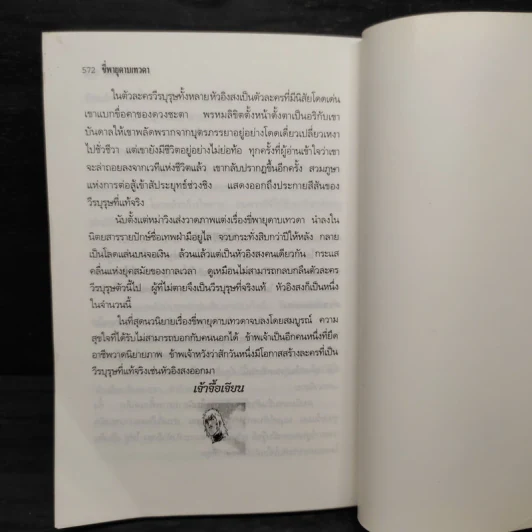 572 ขี่พายุดาบเทวดา
ในตัวละครวีรบุรุษทั้งหลายหัวอิงสงเป็นตัวละครที่มีนิสัยโดดเด่น
เขาแบกชื่อคาของดวงชะตา พรหมลิขิตตั้งหน้าตั้งตาเป็นอริกับเขา
บันดาลให้เขาพลัดพรากจากบุตรภรรยาอยู่อย่างโดดเดี่ยวเปลี่ยวเหงา
ไปชั่วชีวา แต่เขายังมีชีวิตอยู่อย่างไม่ย่อท้อ ทุกครั้งที่ผู้อ่านเข้าใจว่าเขา
จะล่าถอยลงจากเวทีแห่งชีวิตแล้ว เขากลับปรากฏขึ้นอีกครั้ง สวมภูษา
แห่งการต่อสู้เข้าสัประยุทธ์ช่วงชิง แสดงออกถึงประกายสีสันของ
วีรบุรุษที่แท้จริง
นับตั้งแต่หม่าวิ่งเส่งวาดภาพแต่งเรื่องขี่พายุดาบเทวดา นำลงใน
นิตยสารรายปักษ์ชื่อเทพฝ่ามือยูไล จวบกระทั่งสิบกว่าปีให้หลัง กลาย
เป็นโลดแล่นบนจอเงิน ล้วนแล้วแต่เป็นหัวอิงสงคนเดียวกัน กระแส
คลื่นแห่งยุคสมัยของกาลเวลา ดูเหมือนไม่สามารถกลบกลืนตัวละคร
วีรบุรุษตัวนี้ไป ผู้ที่ไม่ตายจึงเป็นวีรบุรุษที่จริงแท้ หัวอิงสงก็เป็นหนึ่ง
ในจำนวนนี้
ในที่สุดนวนิยายเรื่องขี่พายุดาบเทวดาจบลงโดยสมบูรณ์ ความ
สุขใจที่ได้รับไม่สามารถบอกกับคนนอกได้ ข้าพเจ้าเป็นอีกคนหนึ่งที่ยึด
อาชีพวาดนิยายภาพ ข้าพเจ้าหวังว่าสักวันหนึ่งมีโอกาสสร้างละครที่เป็น
วีรบุรุษที่แท้จริงเช่นหัวอิงสงออกมา
เจ้าจื้อเจียน